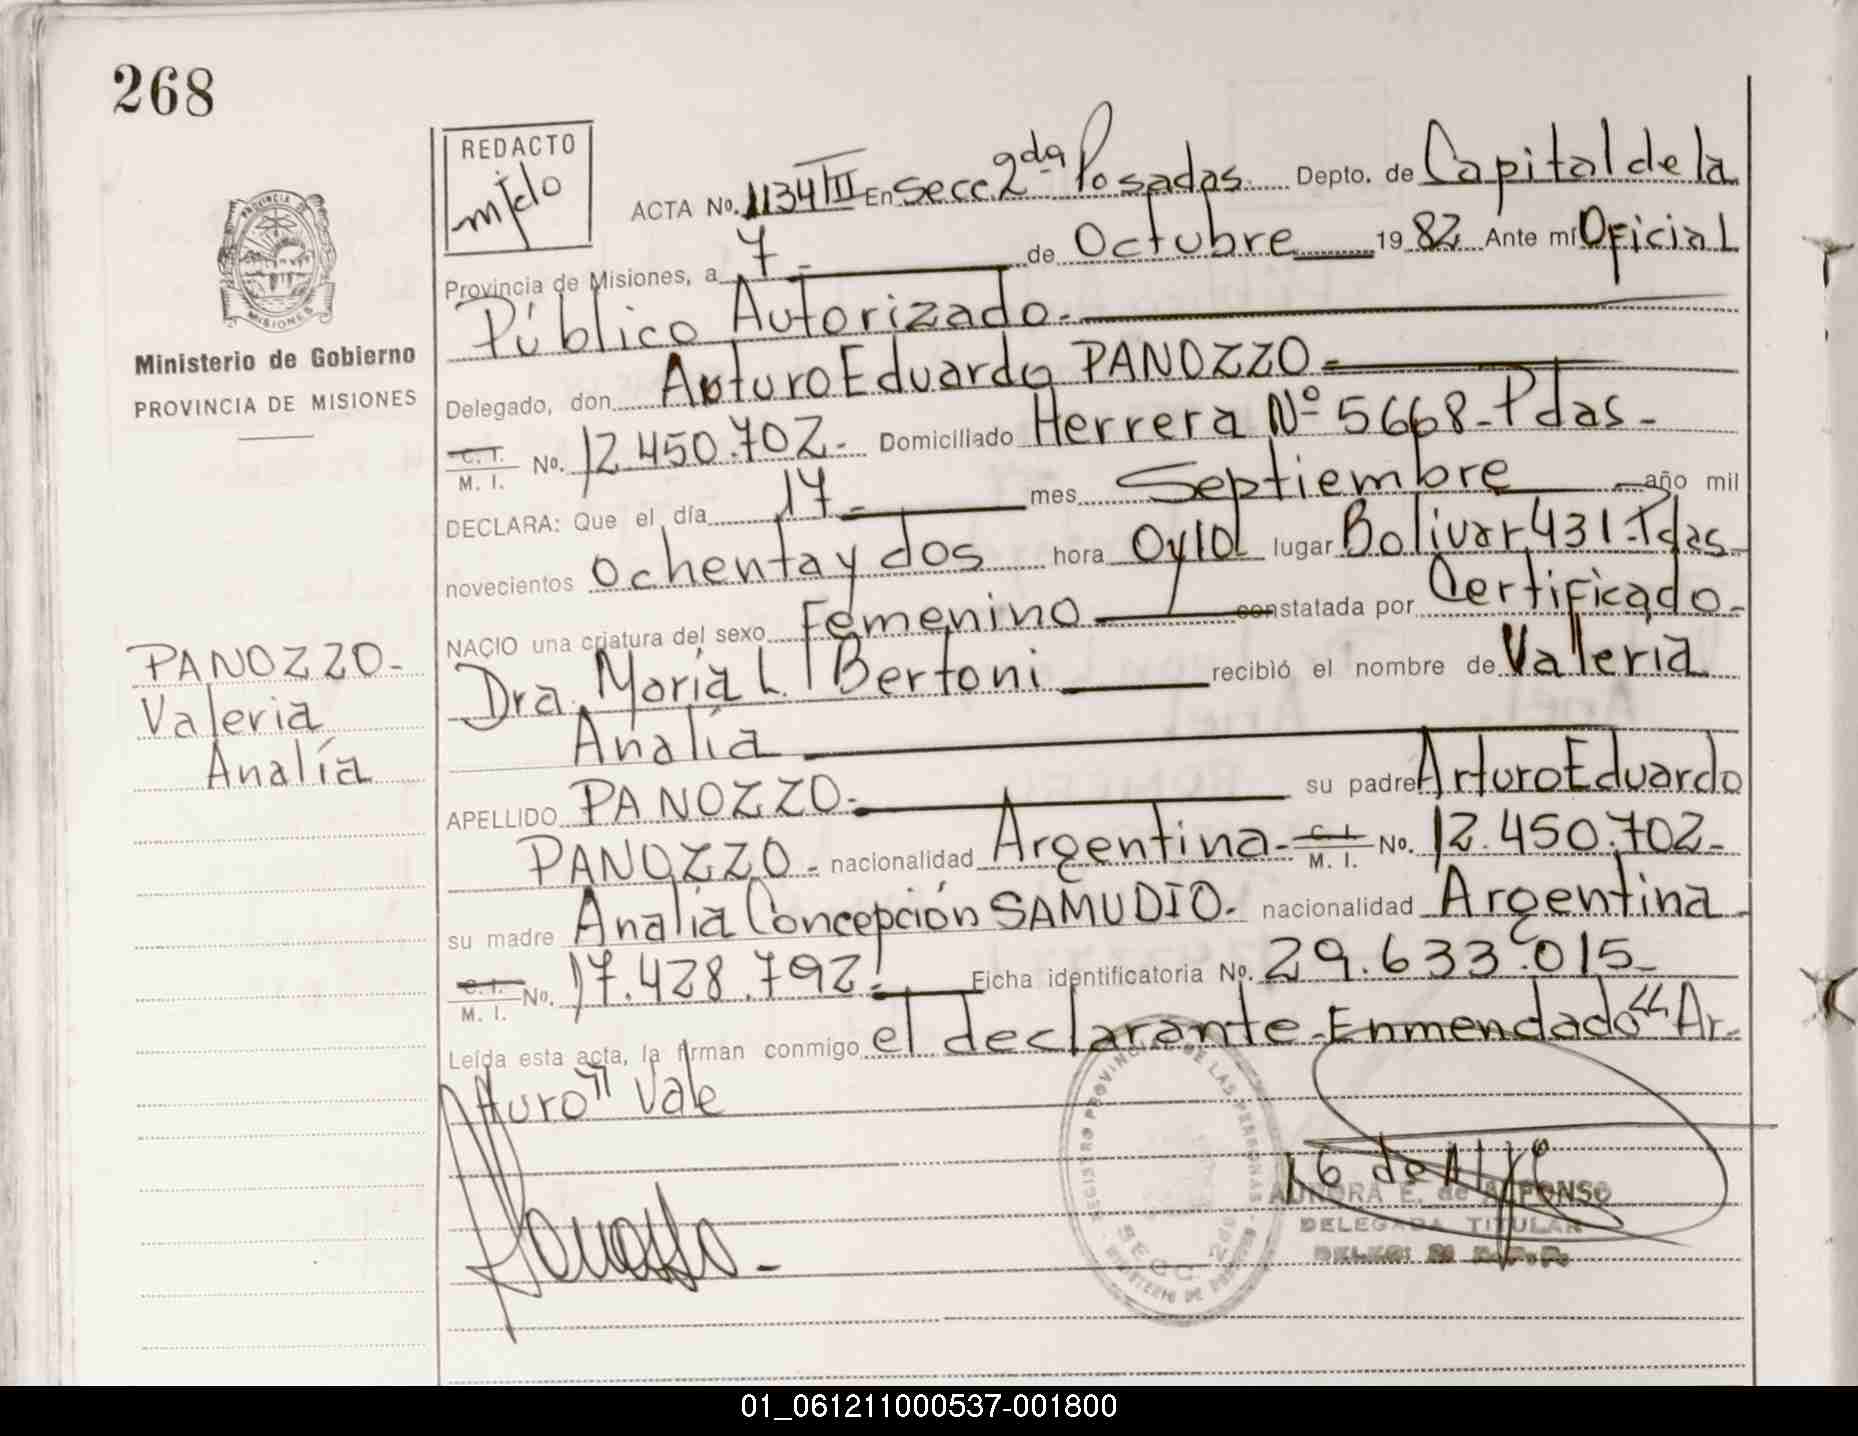 268
REDACTO
ACTA No. 1134/III En Secc. 2da Posadas Depto. de Capital de la
Provincia de Misiones, a 7 - de Octubre 1982 Ante mí Oficial
Público Autorizado.-
Delegado, don Arturo Eduardo PANOZZO -
C. I. M. I. No. 12.450.702- Domiciliado Herrera Nº 5668-Pdas-
DECLARA: Que el día 17- mes Septiembre año mil
novecientos ochenta y dos hora 0y10 lugar Bolivar 431-Pdas-
NACIO una criatura del sexo Femenino constatada por Certificado-
Dra. María L. Bertoni recibió el nombre de Valeria
Analía
APELLIDO PANOZZO.- su padre Arturo Eduardo
PANOZZO - nacionalidad Argentina- C. I. M. I. No. 12.450.702-
su madre Analía Concepción SAMUDIO- nacionalidad Argentina-
C. I. M. I. No. 17.428.792- Ficha identificatoria No. 29.633.015-
Leída esta acta, la firman conmigo el declarante-Enmendado "Ar-
Arturo" Vale
Ministerio de Gobierno
PROVINCIA DE MISIONES
PANOZZO-
Valeria
Analía
PROVINCIA DE
MISIONES
REGISTRO PROVINCIAL DE LAS PERSONAS
SECC. 2da
AURORA E. de ALFONSO
DELEGADA TITULAR
01_061211000537-001800